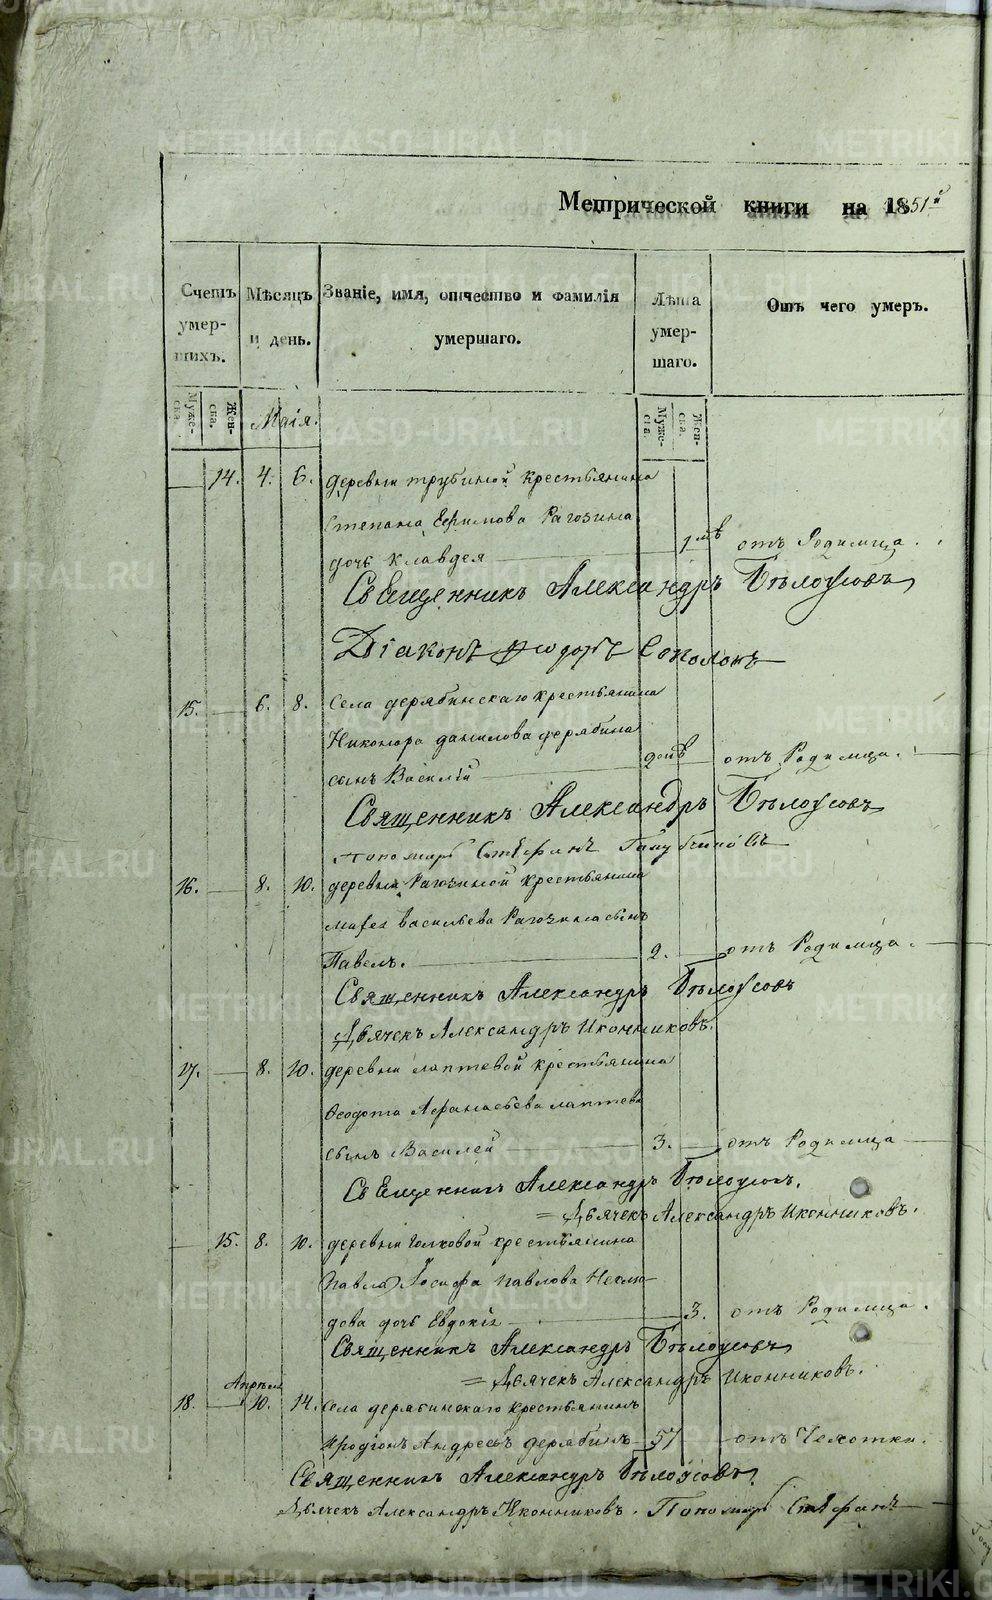 Метрической книги на 1851й
Счетъ умер-шихъ.
Мѣсяцъ и день.
Званіе, имя, отчество и фамилія умершаго.
Лѣта умер-шаго.
Отъ чего умеръ.
Муже-ска.
Жен-ска.
Маія.
Муже-ска.
Жен-ска.
14. 4. 6. деревни трубиной крестьянина
Степана Ефимова Рагозина
дочь Клавдея 1 отъ Родимца.
Священникъ Александръ Бѣлоусовъ
Діаконъ Ѳеодоръ Соколовъ
15. 6. 8. Села дерябинскаго крестьянина
Никонора данилова дерябина
сынъ Василій отъ Родимца.
Священникъ Александръ Бѣлоусовъ
Пономарь Стефанъ
16. 8. 10. деревни Рагозиной крестьянина
васильева Рагозина сынъ
Павелъ. 2. отъ Родимца.
Священникъ Александръ Бѣлоусовъ
Дьячекъ Александръ Иконниковъ.
17. 8. 10. деревни лаптевой крестьянина
Ѳеодота Афанасьева лаптева
сынъ Василей 3. отъ Родимца
Священникъ Александръ Бѣлоусовъ.
Дьячекъ Александръ Иконниковъ.
15. 8. 10. деревни крестьянина
Іосифа павлова
дочь Евдокія 3. отъ Родимца.
Священникъ Александръ Бѣлоусовъ
Дьячекъ Александръ Иконниковъ.
Апрѣля
18. 10. 14. села дерябинскаго крестьянинъ
Иродіонъ Андреевъ дерябинъ 57 отъ Чехотки.
Священникъ Александръ Бѣлоусовъ
Дьячекъ Александръ Иконниковъ. Пономарь Стефанъ
METRIKI.GASO-URAL.RU